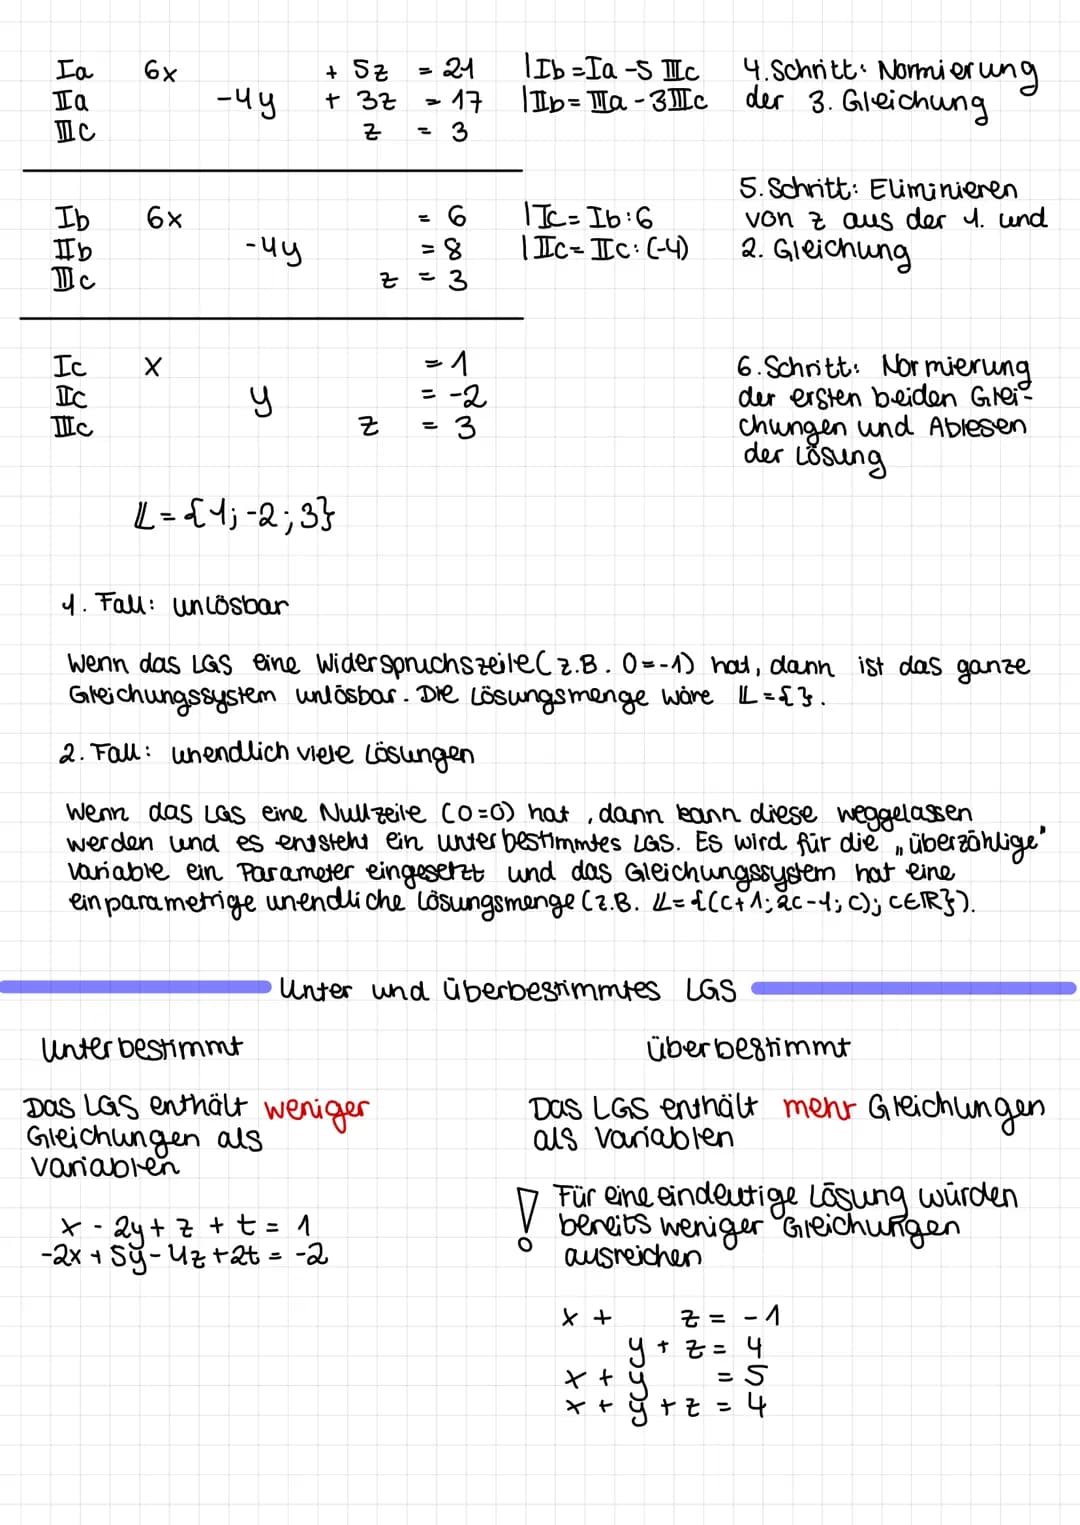 Ia 6x + 5z = 21 | Ib = Ia - 5 IIIc 4. Schritt: Normierung
IIa -4y + 3z = 17 | IIb = IIIa - 3IIIc der 3. Gleichung
IIIC z = 3
5. Schritt: Eliminieren
Ib 6x = 6 | Ic = Ib : 6 von z aus der 1. und
IIb -4y = 8 | IIc = IIc : (-4) 2. Gleichung
IIIc z = 3
Ic x = 1 6. Schritt: Normierung
IIc y = -2 der ersten beiden Glei-
IIIc z = 3 chungen und Ablesen
der Lösung
𝕃 = {1; -2; 3}
1. Fall: unlösbar
Wenn das LGS eine Widerspruchszeile (z.B. 0 = -1) hat, dann ist das ganze
Gleichungssystem unlösbar. Die Lösungsmenge wäre 𝕃 = { }.
2. Fall: unendlich viele Lösungen
Wenn das LGS eine Nullzeile (0=0) hat, dann kann diese weggelassen
werden und es entsteht ein unterbestimmtes LGS. Es wird für die „überzählige"
Variable ein Parameter eingesetzt und das Gleichungssystem hat eine
einparametrige unendliche Lösungsmenge (z.B. 𝕃 = {(c+1; 2c-1; c); c∈ℝ}).
Unter und überbestimmtes LGS
Unterbestimmt überbestimmt
Das LGS enthält weniger
Gleichungen als
Variablen
x - 2y + z + t = 1
-2x + 5y - 4z + 2t = -2
Das LGS enthält mehr Gleichungen
als Variablen
! Für eine eindeutige Lösung würden
bereits weniger Gleichungen
ausreichen
x + z = -1
y + z = 4
x + y = 5
x + y + z = 4